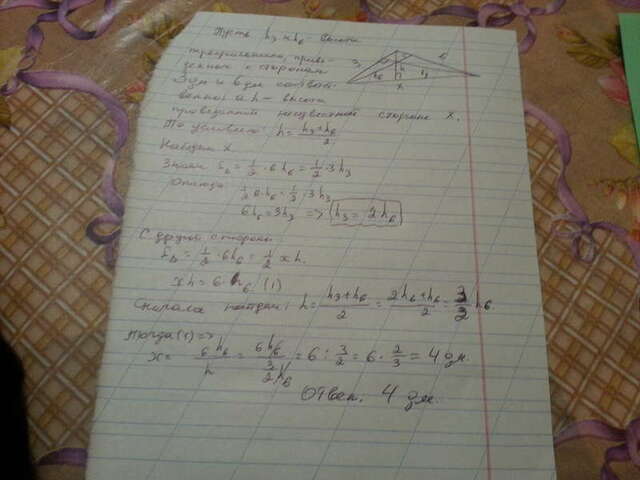 Пусть h₃ и h₆ - высоты
треугольника, прове-
денные к сторонам
3 дм и 6 дм соответ-
венно а h - высота
проведенная неизвестной стороне x.
По условию: h = (h₃+h₆)/2
Найдем x
Знаем S△ = 1/2 · 6h₆ = 1/2 · 3h₃
Откуда 1/2 6·h₆ = 1/2 · 3h₃
6h₆ = 3h₃ => h₃ = 2h₆
С другой стороны
S△ = 1/2 · 6h₆ = 1/2 xh.
xh = 6·h₆ (1)
Сначала найдем: h = (h₃+h₆)/2 = (2h₆+h₆)/2 = 3/2 h₆.
Тогда (1) =>
x = 6h₆/h = 6h₆/(3/2 h₆) = 6 : 3/2 = 6 · 2/3 = 4 дм.
Ответ: 4 дм.